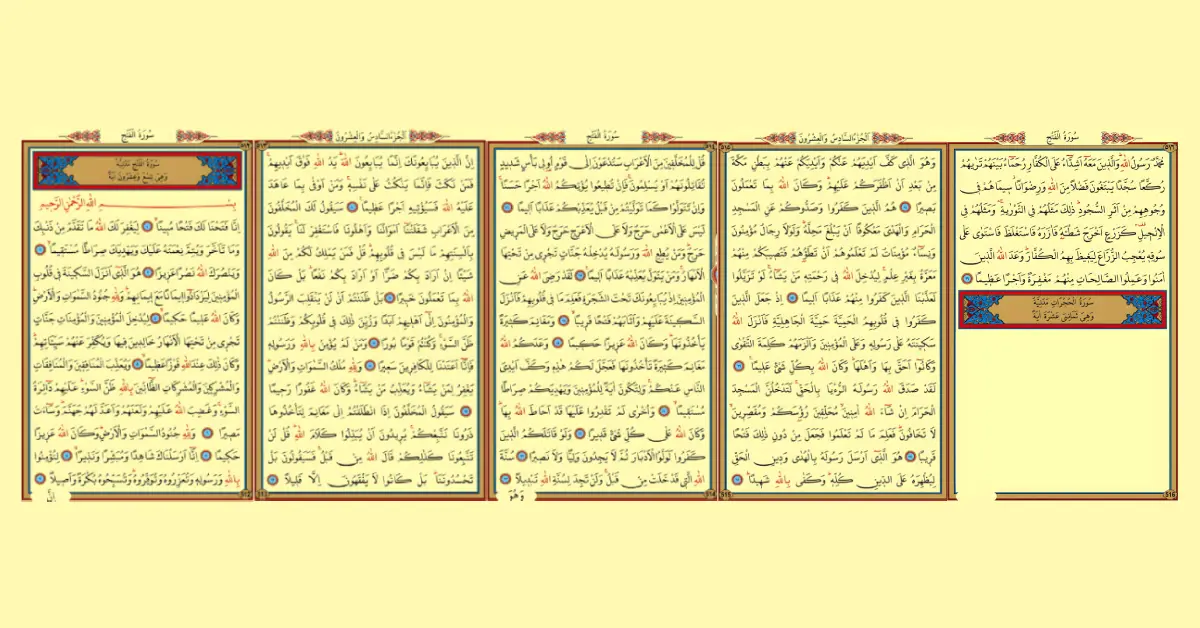 سورة الفتح
سورة الفتح مدنية
وهي تسع وعشرون آية
بسم الله الرحمن الرحيم
انا فتحنا لك فتحا مبينا ليغفر لك الله ما تقدم من ذنبك
وما تاخر ويتم نعمته عليك ويهديك صراطا مستقيما
وينصرك الله نصرا عزيزا هو الذي انزل السكينة في قلوب
المؤمنين ليزدادوا ايمانا مع ايمانهم ولله جنود السموات والارض
وكان الله عليما حكيما ليدخل المؤمنين والمؤمنات جنات
تجري من تحتها الانهار خالدين فيها ويكفر عنهم سيئاتهم
وكان ذلك عند الله فوزا عظيما ويعذب المنافقين والمنافقات
والمشركين والمشركات الظانين بالله ظن السوء عليهم دائرة
السوء وغضب الله عليهم ولعنهم واعد لهم جهنم وساءت
مصيرا ولله جنود السموات والارض وكان الله عزيزا
حكيما انا ارسلناك شاهدا ومبشرا ونذيرا لتؤمنوا
بالله ورسوله وتعزروه وتوقروه وتسبحوه بكرة واصيلا
ان
الجزء السادس والعشرون
ان الذين يبايعونك انما يبايعون الله يد الله فوق ايديهم
فمن نكث فانما ينكث على نفسه ومن اوفى بما عاهد
عليه الله فسيؤتيه اجرا عظيما سيقول لك المخلفون
من الاعراب شغلتنا اموالنا واهلونا فاستغفر لنا يقولون
بالسنتهم ما ليس في قلوبهم قل فمن يملك لكم من الله
شيئا ان اراد بكم ضرا او اراد بكم نفعا بل كان
الله بما تعملون خبيرا بل ظننتم ان لن ينقلب الرسول
والمؤمنون الى اهليهم ابدا وزين ذلك في قلوبكم وظننتم
ظن السوء وكنتم قوما بورا ومن لم يؤمن بالله ورسوله
فانا اعتدنا للكافرين سعيرا ولله ملك السموات والارض
يغفر لمن يشاء ويعذب من يشاء وكان الله غفورا رحيما
سيقول المخلفون اذا انطلقتم الى مغانم لتاخذوها
ذرونا نتبعكم يريدون ان يبدلوا كلام الله قل لن
تتبعونا كذلكم قال الله من قبل فسيقولون بل
تحسدوننا بل كانوا لا يفقهون الا قليلا
سورة الفتح
قل للمخلفين من الاعراب ستدعون الى قوم اولي باس شديد
تقاتلونهم او يسلمون فان تطيعوا يؤتكم الله اجرا حسنا
وان تتولوا كما توليتم من قبل يعذبكم عذابا اليما
ليس على الاعمى حرج ولا على الاعرج حرج ولا على المريض
حرج ومن يطع الله ورسوله يدخله جنات تجري من تحتها
الانهار ومن يتول يعذبه عذابا اليما لقد رضي الله عن
المؤمنين اذ يبايعونك تحت الشجرة فعلم ما في قلوبهم فانزل
السكينة عليهم واثابهم فتحا قريبا ومغانم كثيرة
ياخذونها وكان الله عزيزا حكيما وعدكم الله
مغانم كثيرة تاخذونها فعجل لكم هذه وكف ايدي
الناس عنكم ولتكون آية للمؤمنين ويهديكم صراطا
مستقيما واخرى لم تقدروا عليها قد احاط الله بها
وكان الله على كل شيء قديرا ولو قاتلكم الذين
كفروا لولوا الادبار ثم لا يجدون وليا ولا نصيرا سنة
الله التي قد خلت من قبل ولن تجد لسنة الله تبديلا
وهو
الجزء السادس والعشرون
وهو الذي كف ايديهم عنكم وايديكم عنهم ببطن مكة
من بعد ان اظفركم عليهم وكان الله بما تعملون
بصيرا هم الذين كفروا وصدوكم عن المسجد
الحرام والهدي معكوفا ان يبلغ محله ولولا رجال مؤمنون
ونساء مؤمنات لم تعلموهم ان تطؤهم فتصيبكم منهم
معرة بغير علم ليدخل الله في رحمته من يشاء لو تزيلوا
لعذبنا الذين كفروا منهم عذابا اليما اذ جعل الذين
كفروا في قلوبهم الحمية حمية الجاهلية فانزل الله
سكينته على رسوله وعلى المؤمنين والزمهم كلمة التقوى
وكانوا احق بها واهلها وكان الله بكل شيء عليما
لقد صدق الله رسوله الرءيا بالحق لتدخلن المسجد
الحرام ان شاء الله آمنين محلقين رؤسكم ومقصرين
لا تخافون فعلم ما لم تعلموا فجعل من دون ذلك فتحا
قريبا هو الذي ارسل رسوله بالهدى ودين الحق
ليظهره على الدين كله وكفى بالله شهيدا
515
سورة الفتح
محمد رسول الله والذين معه اشداء على الكفار رحماء بينهم تريهم
ركعا سجدا يبتغون فضلا من الله ورضوانا سيماهم في
وجوههم من اثر السجود ذلك مثلهم في التورية ومثلهم في
الانجيل كزرع اخرج شطئه فآزره فاستغلظ فاستوى على
سوقه يعجب الزراع ليغيظ بهم الكفار وعد الله الذين
آمنوا وعملوا الصالحات منهم مغفرة واجرا عظيما
سورة الحجرات مدنية
وهي ثماني عشرة آية
516